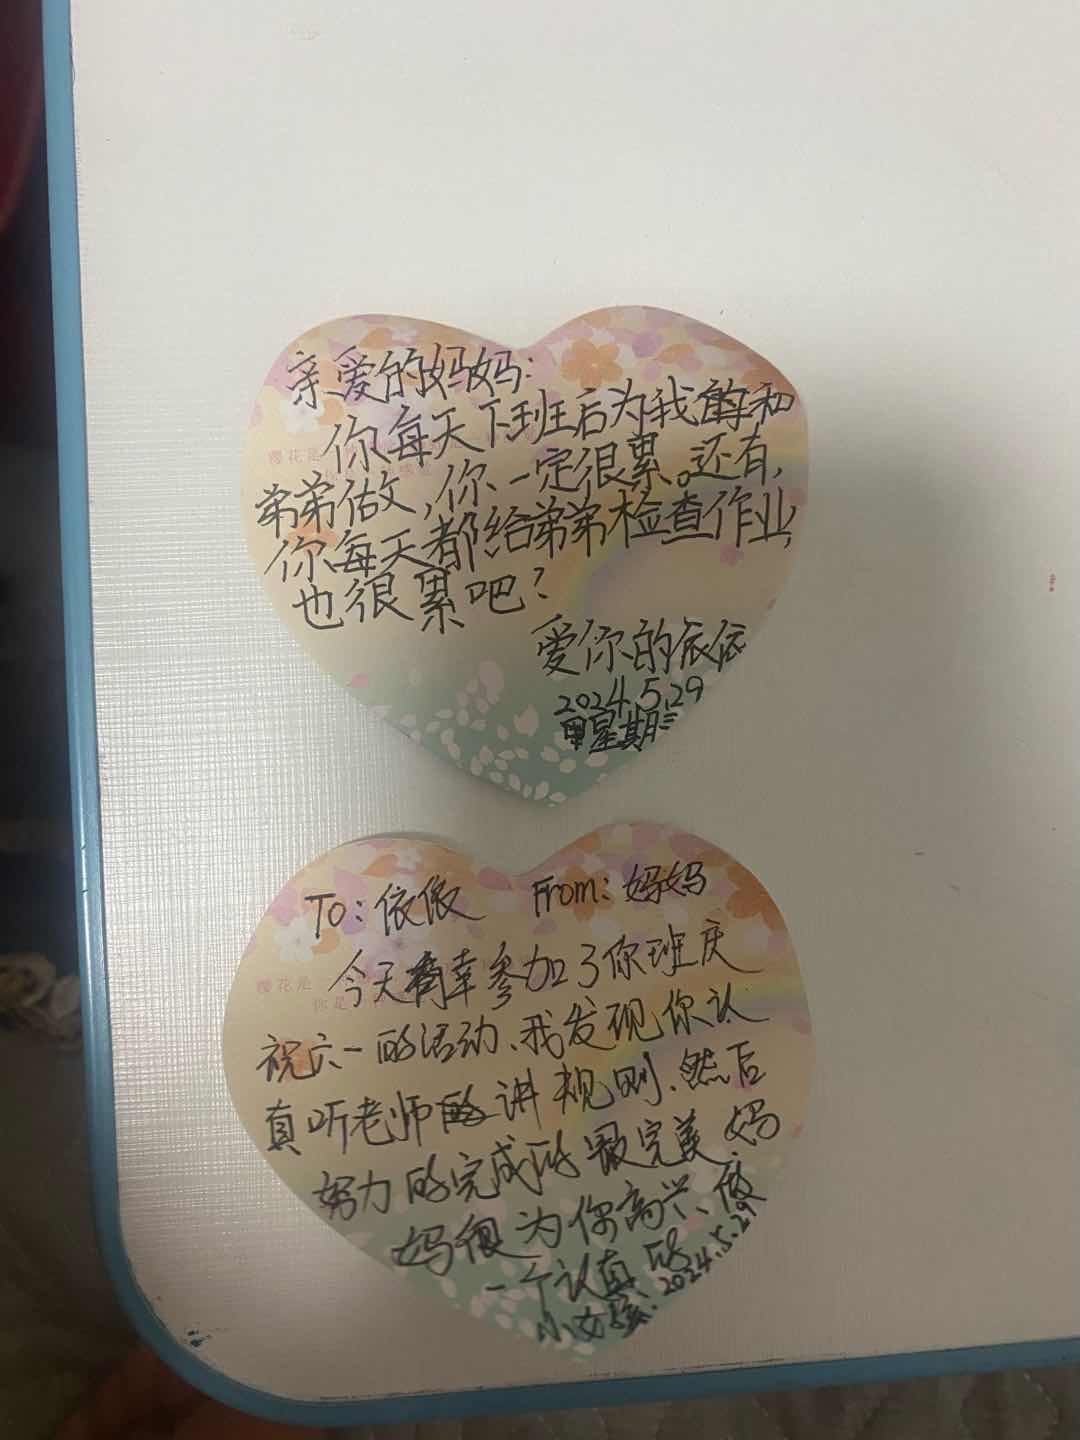 亲爱的妈妈:
你每天下班后为我和
弟弟做,你一定很累。还有,
你每天都给弟弟检查作业,
也很累吧?
爱你的依依
2024.5.29
星期三
樱花是
To:依依 From:妈妈
今天有幸参加了你班庆
祝六一的活动、我发现你认
真听老师的讲规则、然后
努力的完成的最完美 妈
妈很为你高兴、做
一个认真的
小女孩.2024.5.29
樱花是
你是